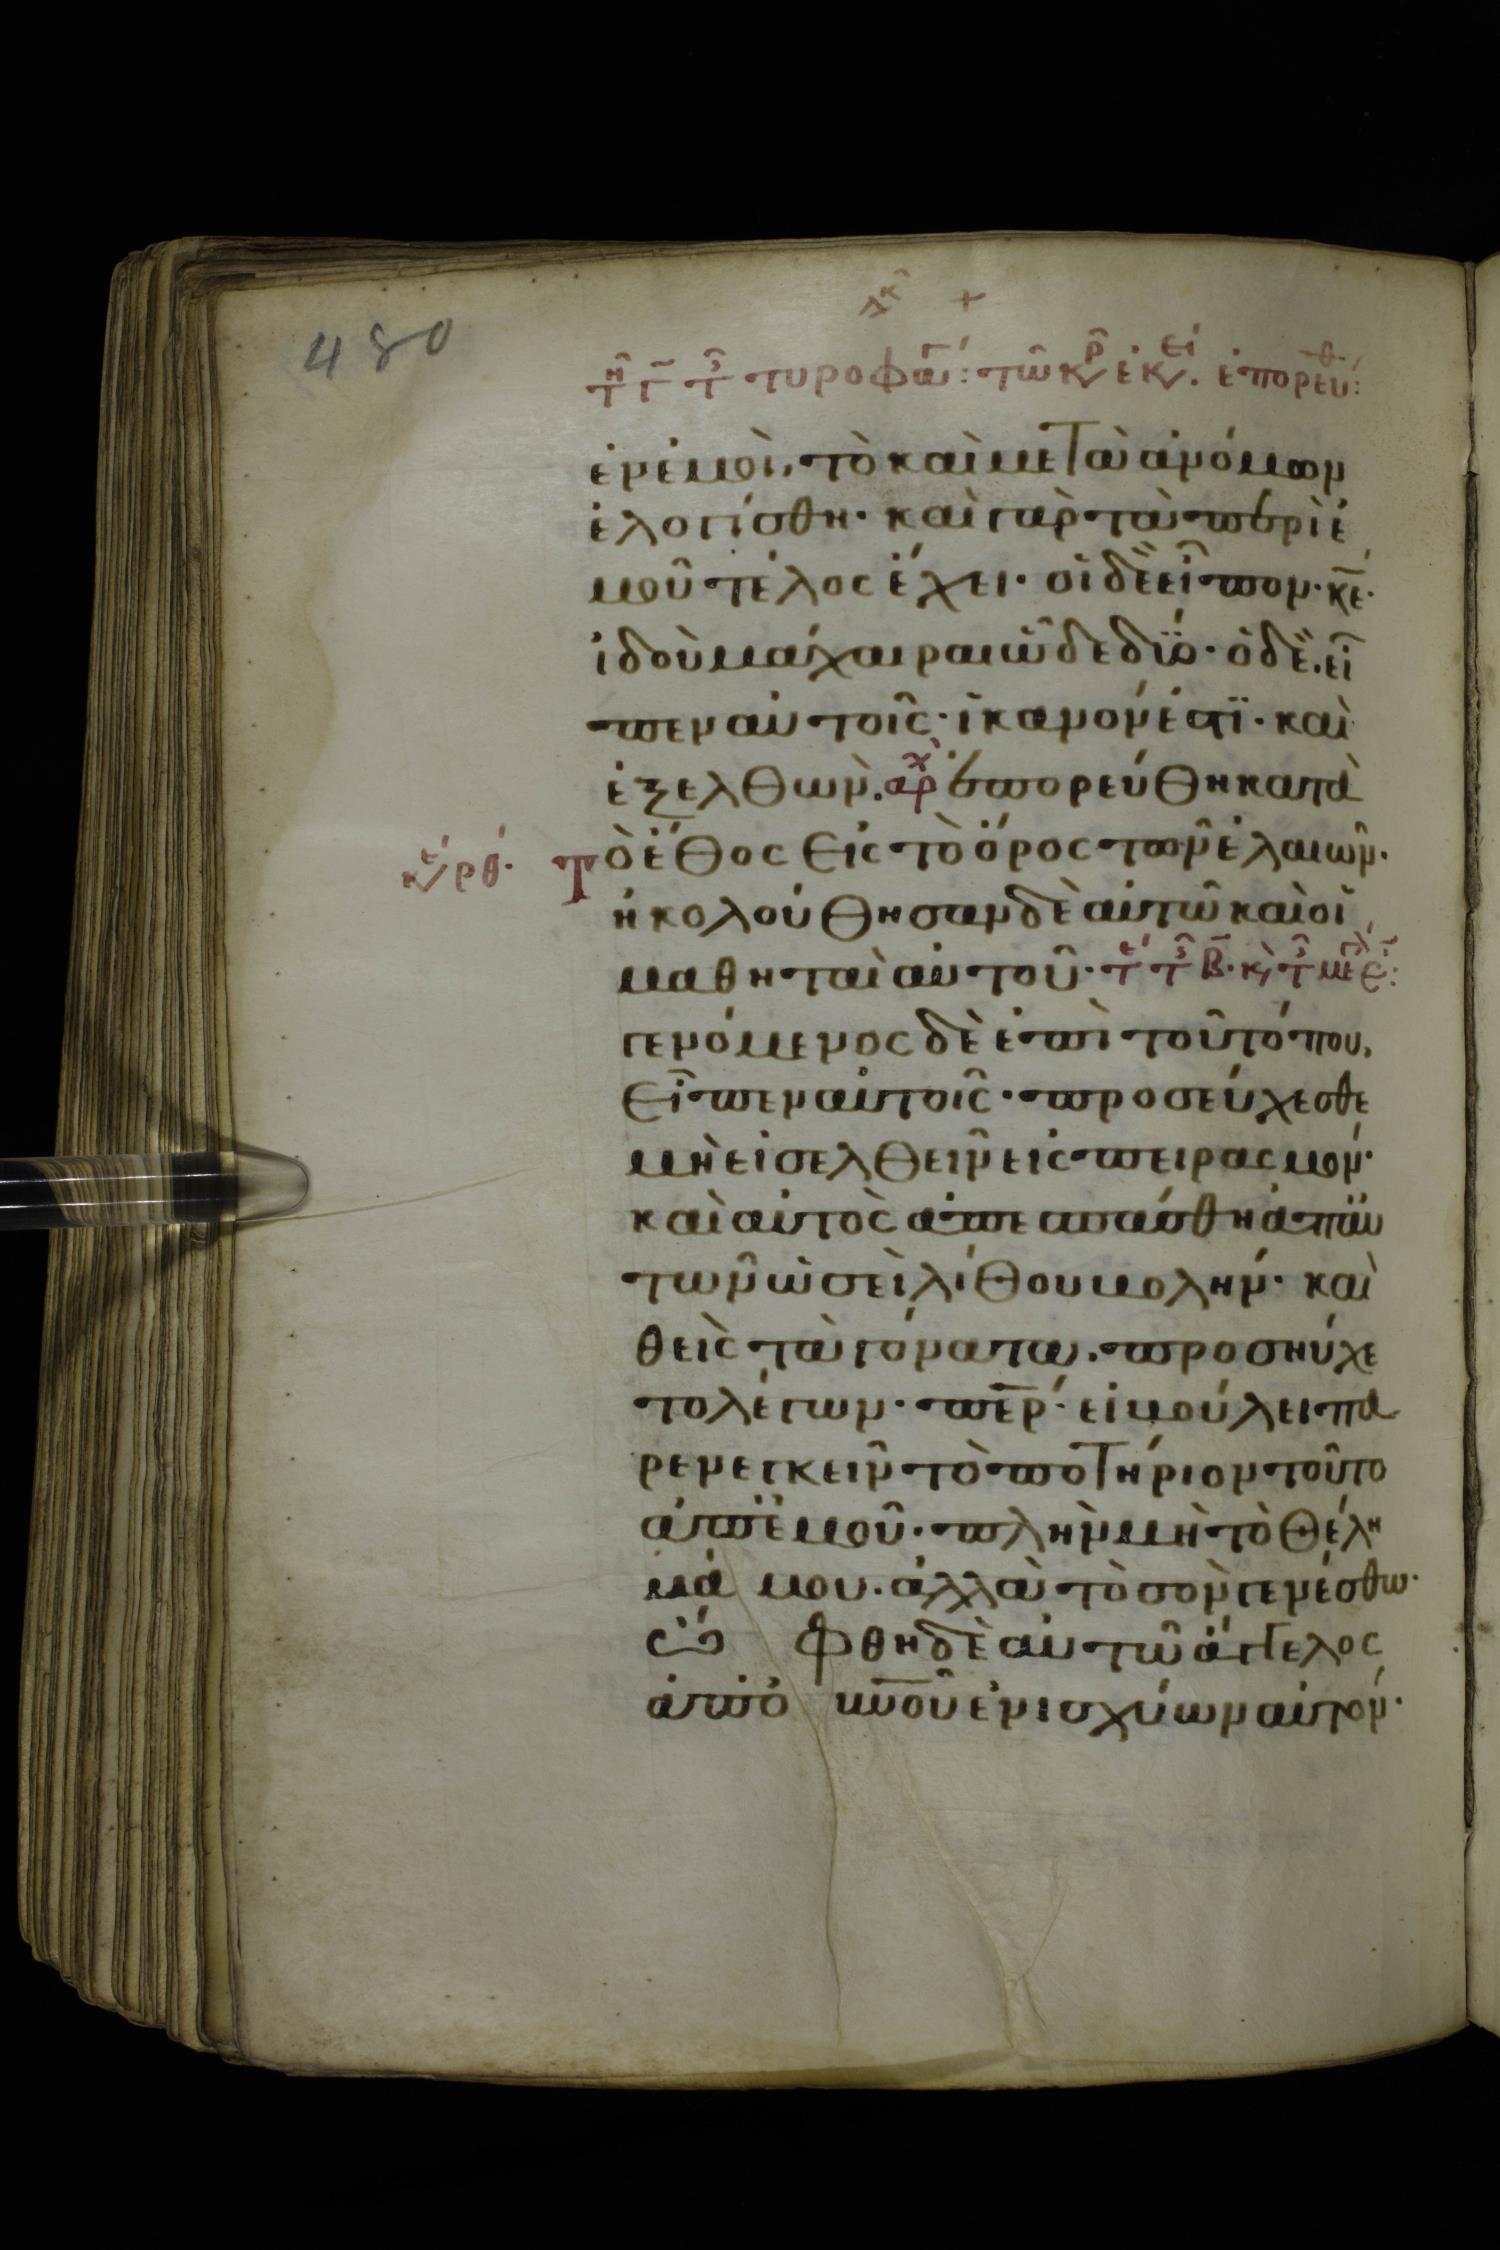 480
τῆ γ τῆς τυροφά: τῶ κρ ἐκεί. ἐπορεύθ:
ἐν ἐμοὶ, τὸ καὶ μετὰ ἀνόμων
ἐλογίσθη· καὶ γὰρ τὰ περὶ ἐ
μοῦ τέλος ἔχει· οἱ δὲ εἶπον· κε·
ἰδοὺ μάχαιραι ὧδε δύο· ὁ δὲ. εἶ
πεν αὐτοῖς· ἱκανόν ἐστι· καὶ
ἐξελθὼν. αρχ ἐπορεύθη κατὰ
κε ρθ· Τὸ ἔθος εἰς τὸ ὄρος τῶν ἐλαιῶν·
ἠκολούθησαν δὲ αὐτῶ καὶ οἱ
μαθηταὶ αὐτοῦ·
γενόμενος δὲ ἐπὶ τοῦ τόπου,
εἶπεν αὐτοῖς· προσεύχεσθε
μὴ εἰσελθεῖν εἰς πειρασμόν·
καὶ αὐτὸς ἀπεσπάσθη ἀπ αὐ
τῶν ὡσεὶ λίθου βολήν· καὶ
θεὶς τὰ γόνατα. προσηύχε
το λέγων· περ· εἰ βούλει πα
ρενεγκεῖν τὸ ποτήριον τοῦτο
ἀπ ἐμοῦ· πλὴν μὴ τὸ θέλη
μά μου. ἀλλὰ τὸ σὸν γενέσθω·
ὤφθη δὲ αὐτῶ ἄγγελος
ἀπὸ οὐνοῦ ἐνισχύων αὐτόν·